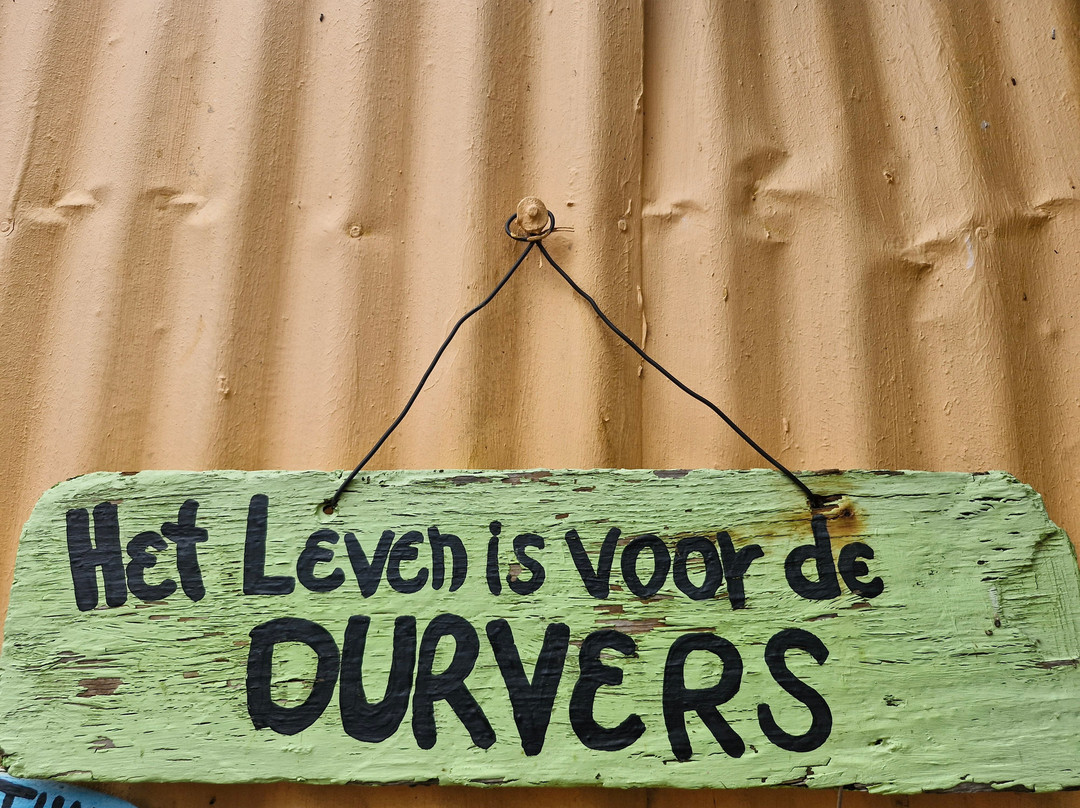 Het Leven is voor de
DURVERS